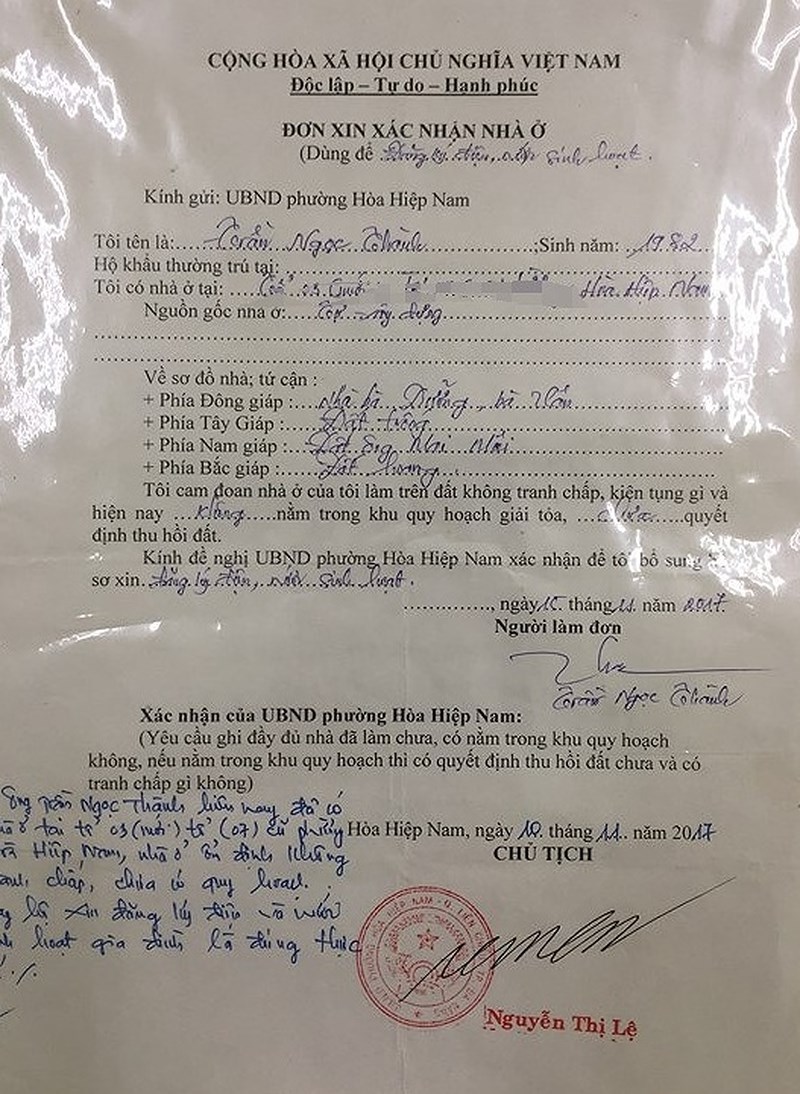 CỘNG HÒA XÃ HỘI CHỦ NGHĨA VIỆT NAM
Độc lập – Tự do – Hạnh phúc
ĐƠN XIN XÁC NHẬN NHÀ Ở
(Dùng để Đăng ký điện, nước sinh hoạt.
Kính gửi: UBND phường Hòa Hiệp Nam
Tôi tên là:.... Trần Ngọc Thành ....;Sinh năm: ..1982...
Hộ khẩu thường trú tại: ....
Tôi có nhà ở tại: .... Tổ 03 Hòa Hiệp Nam
Nguồn gốc nha ở:.... xây dựng ....
Về sơ đồ nhà; tứ cận :
+ Phía Đông giáp :.... Nhà bà Dưỡng, bà Vân
+ Phía Tây Giáp :.... Đất trống
+ Phía Nam giáp :.... Đất ông Mai
+ Phía Bắc giáp :.... Đất
Tôi cam đoan nhà ở của tôi làm trên đất không tranh chấp, kiện tụng gì và
hiện nay ...Không.....nằm trong khu quy hoạch giải tỏa, ...chưa.....quyết
định thu hồi đất.
Kính đề nghị UBND phường Hòa Hiệp Nam xác nhận để tôi bổ sung
sơ xin. Đăng ký điện, nước sinh hoạt.
..............., ngày tháng 11. năm 2017.
Người làm đơn
Trần Ngọc Thành
Xác nhận của UBND phường Hòa Hiệp Nam:
(Yêu cầu ghi đầy đủ nhà đã làm chưa, có nằm trong khu quy hoạch
không, nếu nằm trong khu quy hoạch thì có quyết định thu hồi đất chưa và có
tranh chấp gì không)
Ông Trần Ngọc Thành hiện nay đã có
ở tại tổ 03 (mới) tổ (07) cũ phường
Hiệp Nam, nhà ở ổn định không
chấp, chưa có quy hoạch.
xin đăng ký điện và nước
hoạt gia đình là đúng thực
Hòa Hiệp Nam, ngày 10. tháng 11.. năm 2017
CHỦ TỊCH
Nguyễn Thị Lệ